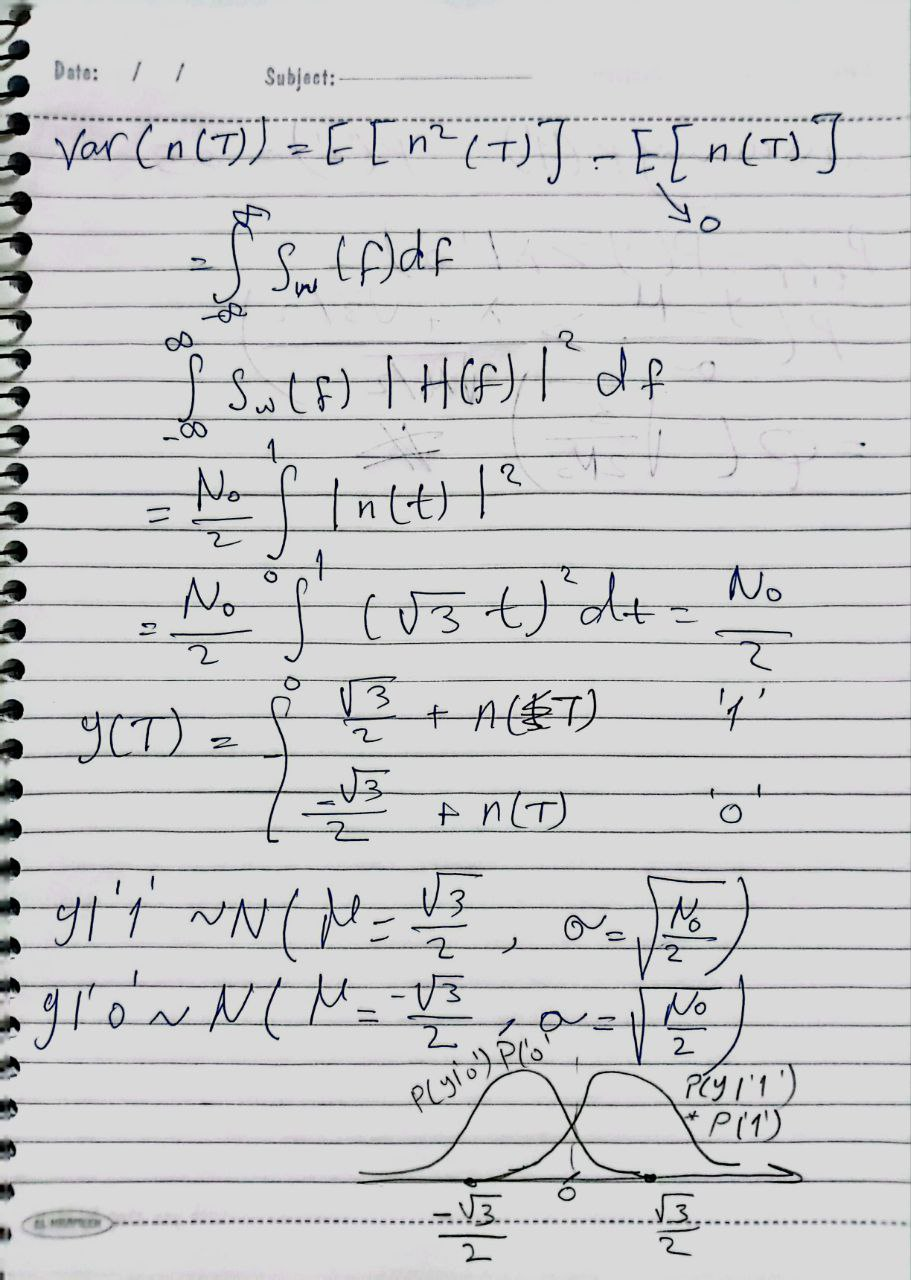 Date: / / Subject:
Var(n(T)) = E[n²(T)] - E[n(T)]
↘ 0
= ∫_{-∞}^{∞} S_w(f)df
∫_{-∞}^{∞} S_w(f) |H(f)|² df
= N₀/2 ∫_0^1 |n(t)|²
= N₀/2 ∫_0^1 (√3 t)² dt = N₀/2
y(T) = { √3/2 + n(T) '1'
-√3/2 + n(T) '0'
y|'1' ~ N(μ = √3/2, σ = √(N₀/2))
y|'0' ~ N(μ = -√3/2, σ = √(N₀/2))
P(y|'0') P('0' P(y|'1')
* P('1')
-√3/2 0 √3/2